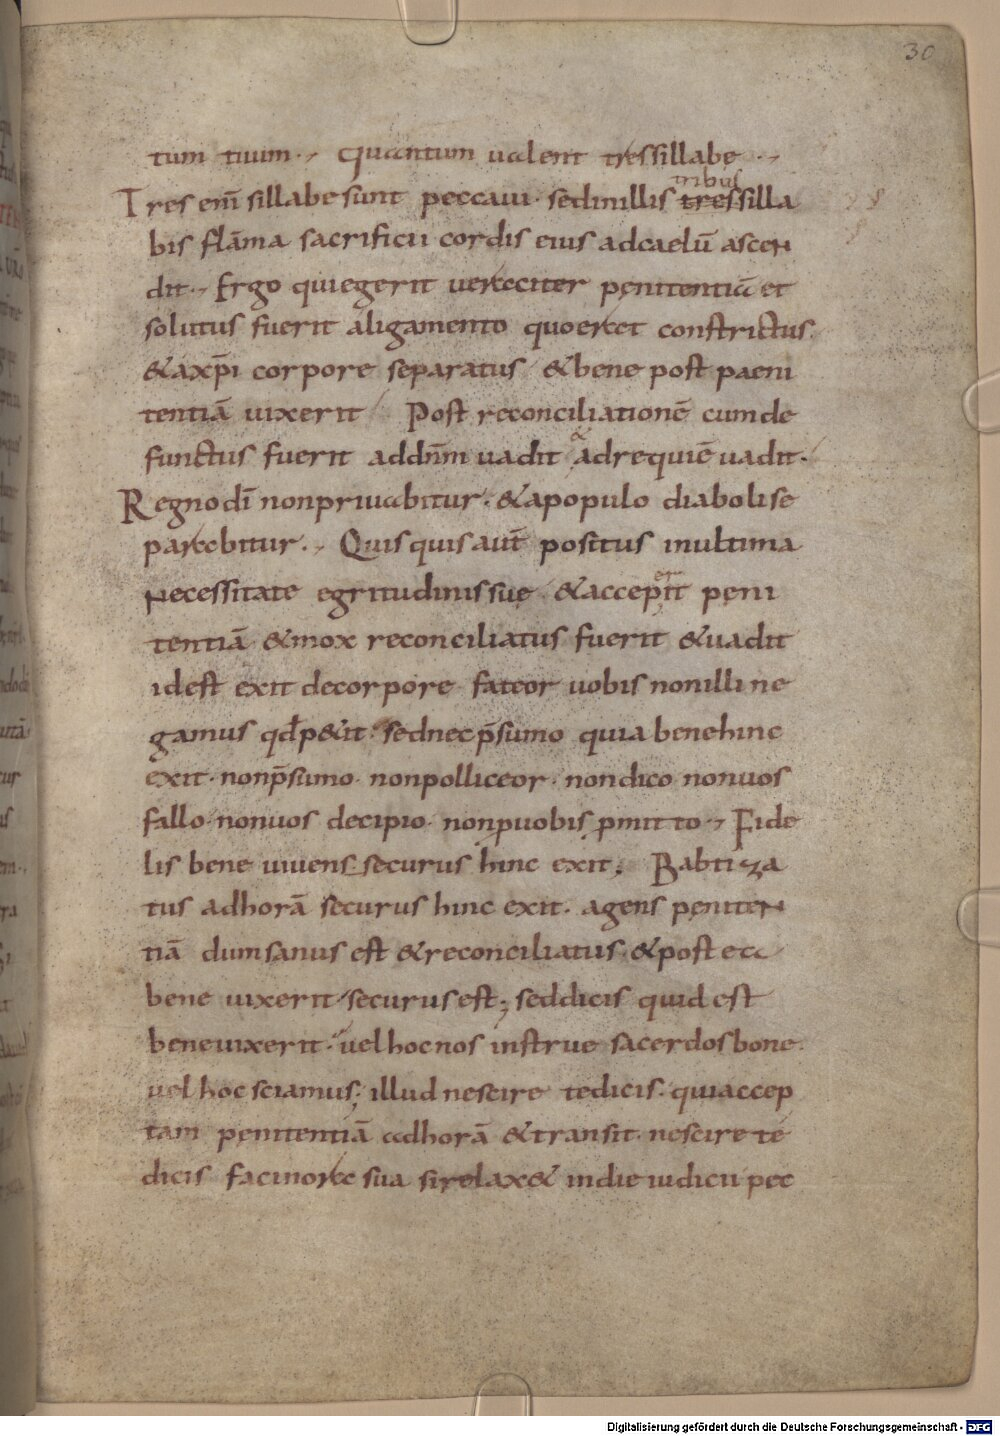 30
tum tuum·, quantum ualent tressillabe·,
tribus
Tres eni̅ sillabe sunt peccaui· sedinillis tressilla
bis fla̅ma sacrificii cordis eius adcaelu̅ ascen
dit·, Ergo quiegerit ueraciter penitentia̅ et
solutus fuerit aligamento quoerat constrictus·
&axp̅i corpore separatus &bene post paeni
tentia̅ uixerit Post reconciliatione̅ cumde
functus fuerit addn̅m uadit adrequie̅ uadit·
Regnodi̅ nonpriuabitur· &apopulo diabolise
parabitur·, Quisquisaut̅ positus inultima
necessitate egritudinissuę &accepit peni
tentia̅ &mox reconciliatus fuerit &uadit
idest exit decorpore fateor uobis nonilline
gamus qd̅p&it· sednec p̅sumo quia benehinc
exit· nonp̅sumo· nonpolliceor· nondico nonuos
fallo· nonuos decipio· nonꝓuobis ꝓmitto·, Fide
lis bene uiuens securus hinc exit; Babtiza
tus adhora̅ securus hinc exit· agens peniten
tia̅ dumsanus est &reconciliatus· &postea
bene uixerit securusest; seddicis quid est
beneuixerit· uelhocnos instrue sacerdosbone·
uelhoc sciamus; illud nescire tedicis· quiaccep
tam penitentia̅ adhora̅ &transit· nescire te
dicis facinora sua sirelax& indieiudicii pec
Digitalisierung gefördert durch die Deutsche Forschungsgemeinschaft - DFG